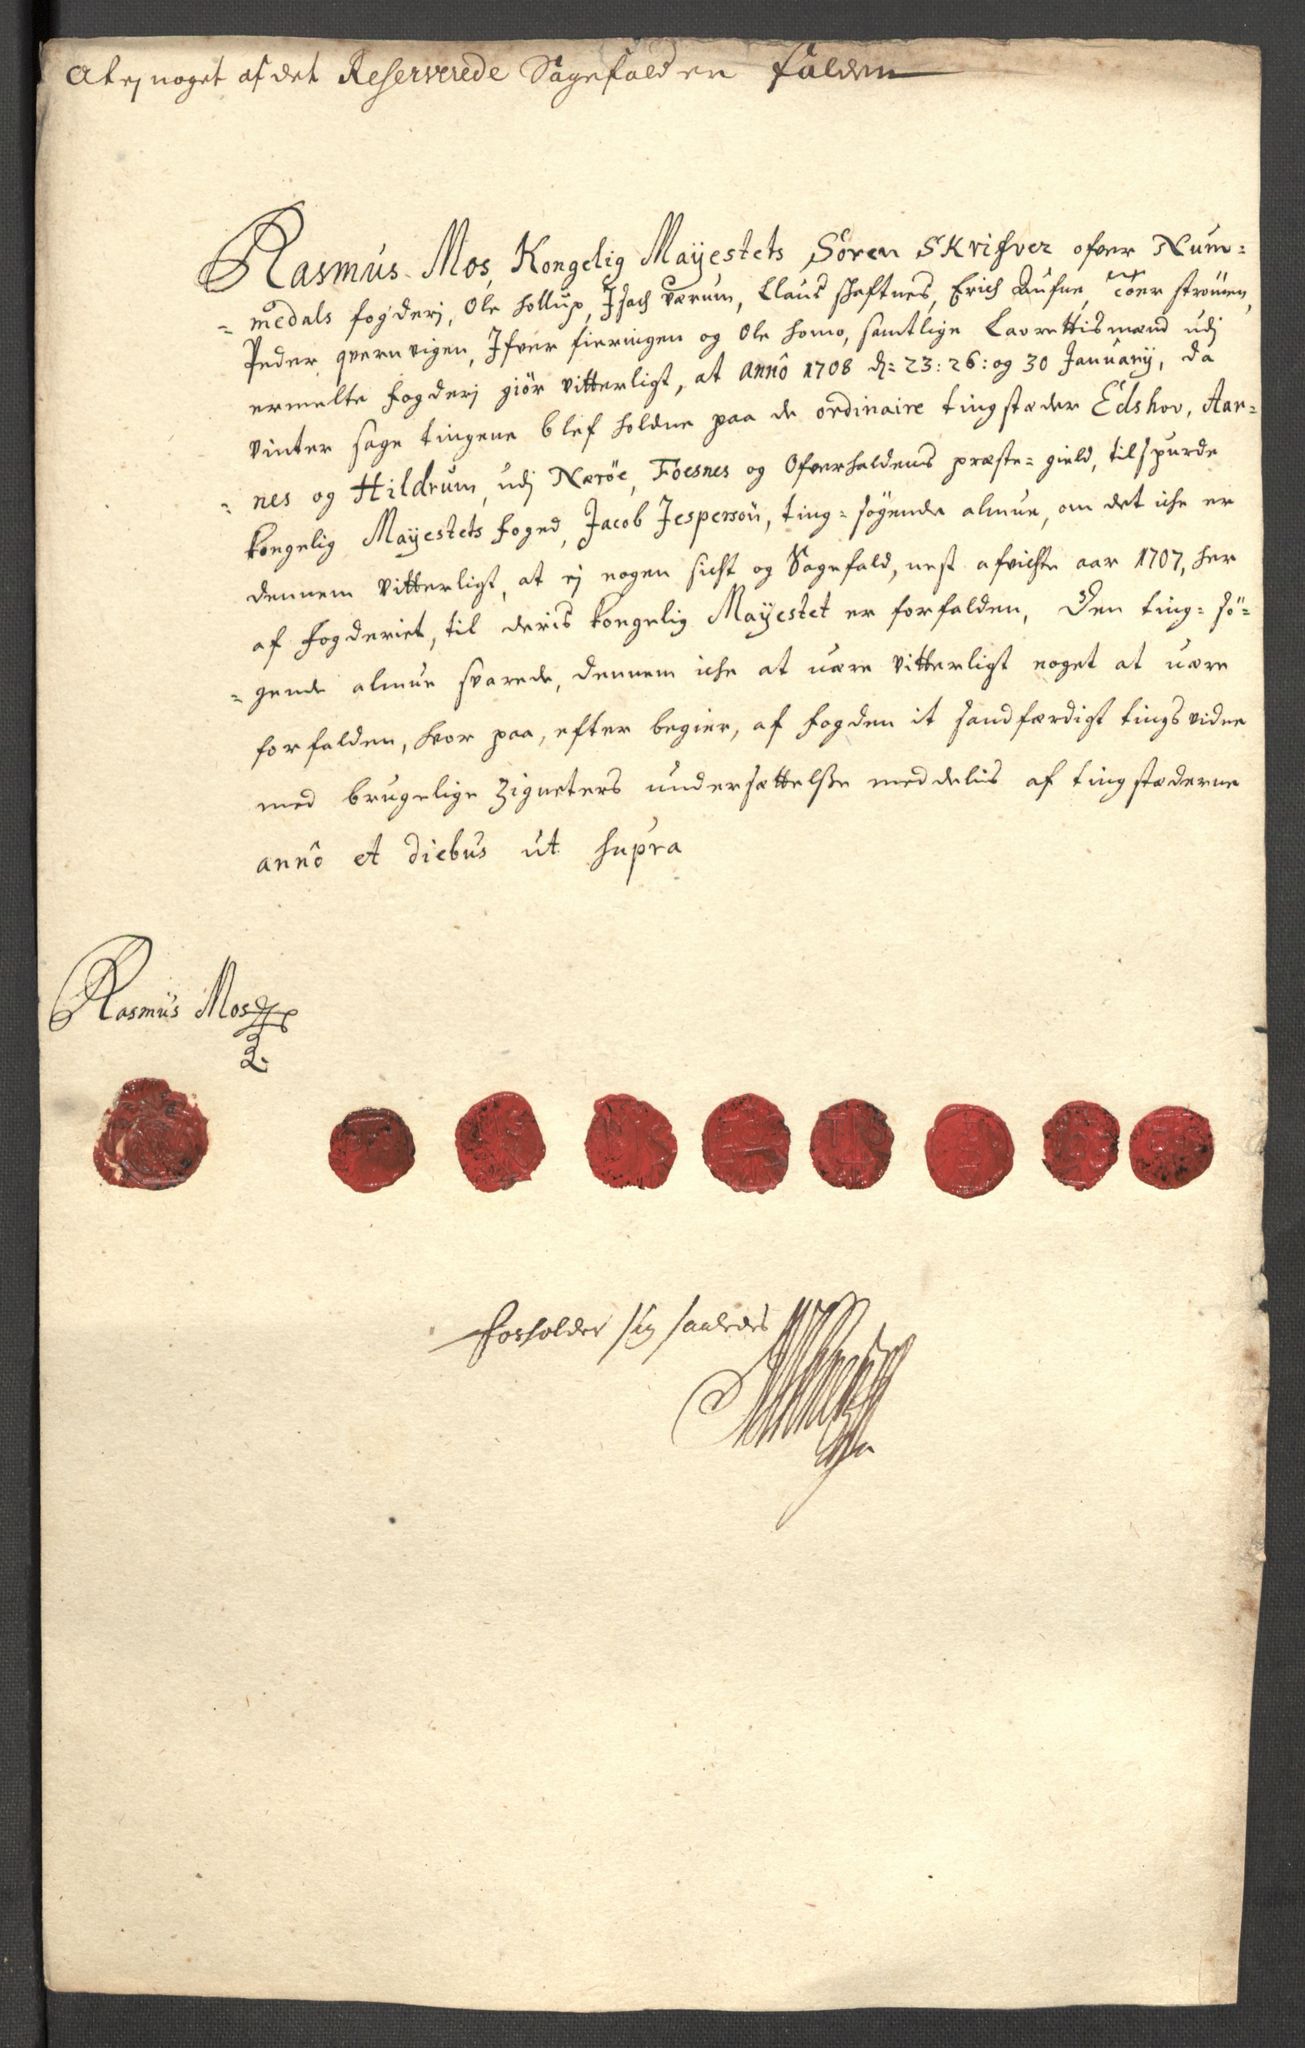 At ej noget af det Reserverede Sagefald er falden
Rasmus Mos, Kongelig Maÿestets Soren Skrifver ofver Num-
=medals fogderj, Ole Hollup, Isach Værum, Claus Skaftnes, Erich Aufne, Toer Strömen,
Peder qvernvigen, Ifver fieringen og Ole Homo, samtlige Laurettismænd udj
ermelte fogderj giör vitterligt, at annô 1708 d: 23: 26: og 30 Januarij, da
vinter sage tingene blef holdne paa de ordinaire tingstæder Edshov, Aar=
=nes og Hildrum, udj Næröe, Foesnes og Ofverhaldens præste=gield, tilspurde
kongelig Maÿestets foged, Jacob Jesperson, ting=sögende almue, om det iche er
dennem vitterligt, at ej nogen sicht og Sagefald, nest afvichte aar 1707, her
af fogderiet, til deris kongelig Maÿestet er forfalden, Den ting=sö=
=gende almue svarede, dennem iche at være vitterligt noget at være
forfalden, hvor paa, efter begier, af fogden it sandfærdigt tings vidne
med brugelige Zigneters undersættelse meddelis af tingstæderne
annô et diebus ut supra
Rasmus Mos
forholder sig saaledes